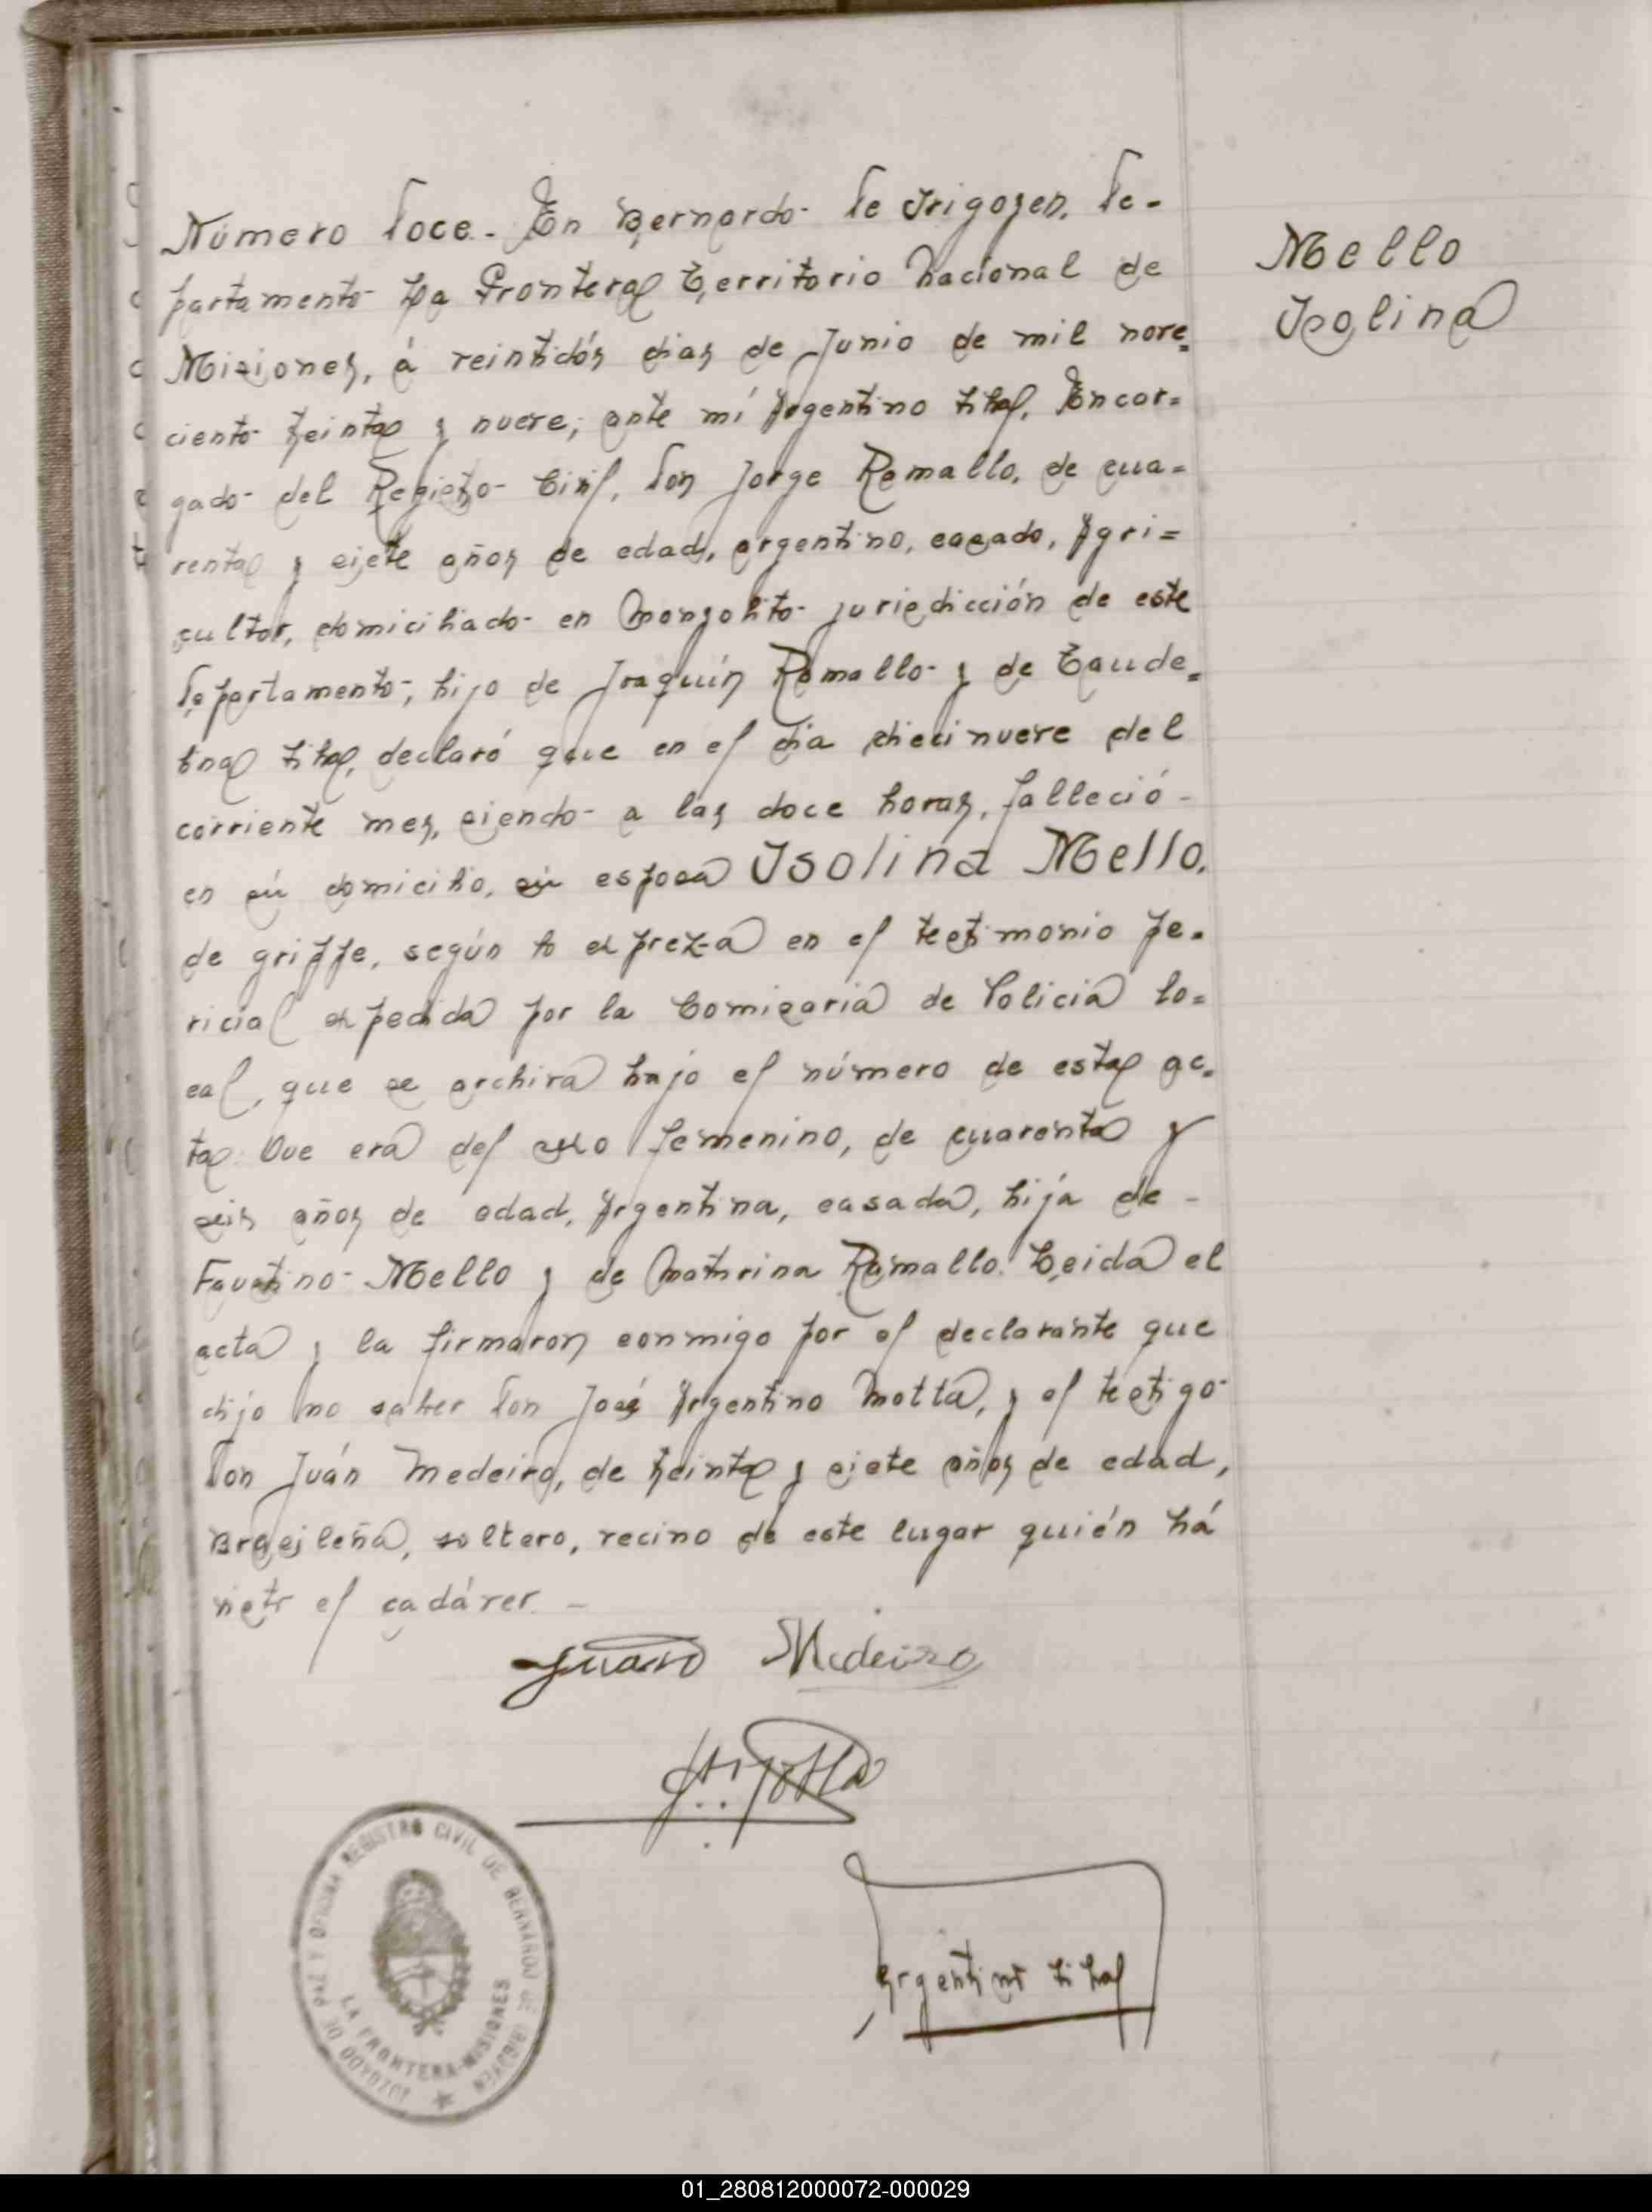 Número Doce.- En Bernardo de Irigoyen, De-
partamento La Frontera Territorio Nacional de
Misiones, á veintidós dias de Junio de mil nove=
ciento treinta y nueve; ante mí Argentino Silva, Encar=
gado del Registro Civil, Don Jorge Ramallo, de cua=
renta y siete años de edad, argentino, casado, Agri=
cultor, domiciliado en Monzolito jurisdicción de este
Departamento, hijo de Joaquín Ramallo y de
declaró que en el dia diecinueve del
corriente mes, siendo a las doce horas, falleció-
en sú domicilio, sú esposa Isolina Mello,
de grippe, según lo expreza en el testimonio pe=
ricial expedida por la Comisaria de Policia lo=
cal, que se archiva bajo el número de esta ac=
ta. Que era del sexo femenino, de cuarenta y
seis años de edad, Argentina, casada, hija de-
Faustino Mello y de Maturina Ramallo. Leida el
acta y la firmaron conmigo por el declarante que
dijo no saber Don José Argentino Motta, y el testigo
Don Juán Medeiro, de treinta y siete años de edad,
Brasileña, soltero, vecino de este lugar quién há
visto el cadáver.-
Mello
Isolina
Juan Medeiro
Argentino
JUZGADO DE PAZ Y OFICINA REGISTRO CIVIL DE BERNARDO DE IRIGOYEN
LA FRONTERA-MISIONES
01_280812000072-000029